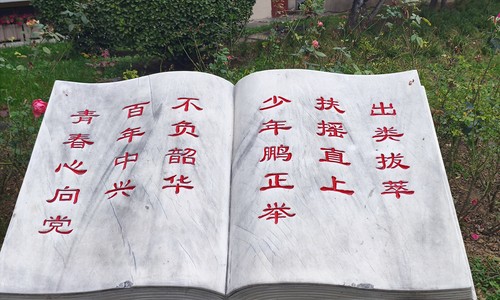 青春心向党
百年中兴
不负韶华
少年鹏正举
扶摇直上
出类拔萃